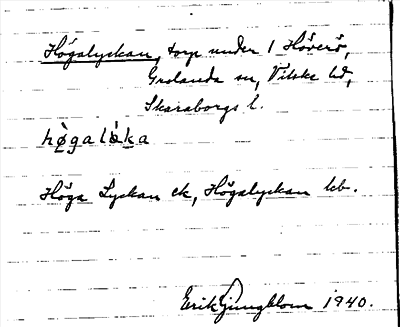 Högalyckan, torp under 1 Höverö,
Grolanda sn, Vilske hd,
Skaraborgs l.
hø̀galỳka
Höga Lyckan ek, Högalyckan kb.
Erik Ljungblom 1940.